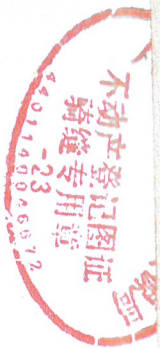 不动产登记图证
骑缝专用章
-23
4401140046672